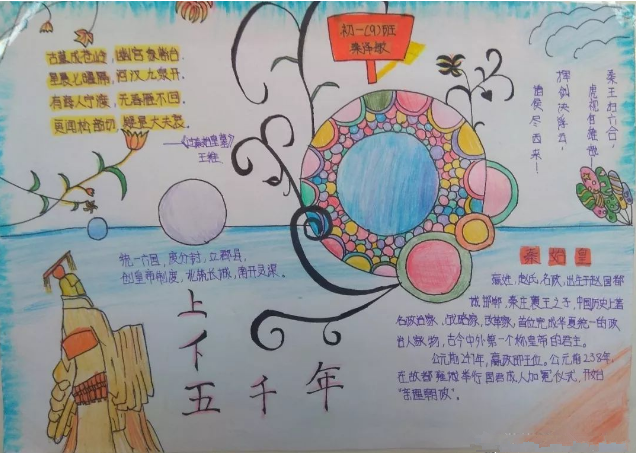 古墓成苍岭，幽宫象紫台。
星辰七曜隔，河汉九泉开。
有海人宁渡，无春雁不回。
更闻松韵切，疑是大夫哀。
——《过秦始皇墓》
王维
初一(9)班
秦王扫六合，
虎视何雄哉！
挥剑决浮云，
诸侯尽西来！
统一六国，废分封，立郡县，
创皇帝制度，北筑长城，凿开灵渠。
上
下
五千年
秦始皇
嬴姓，赵氏，名政，出生于赵国都
城邯郸，秦庄襄王之子，中国历史上著
名政治家、战略家、改革家，首位完成华夏统一的政
治人物，古今中外第一个称皇帝的君主。
公元前247年，嬴政即王位。公元前238年，
在故都雍城举行国君成人加冕仪式，开始
“亲理朝政”。